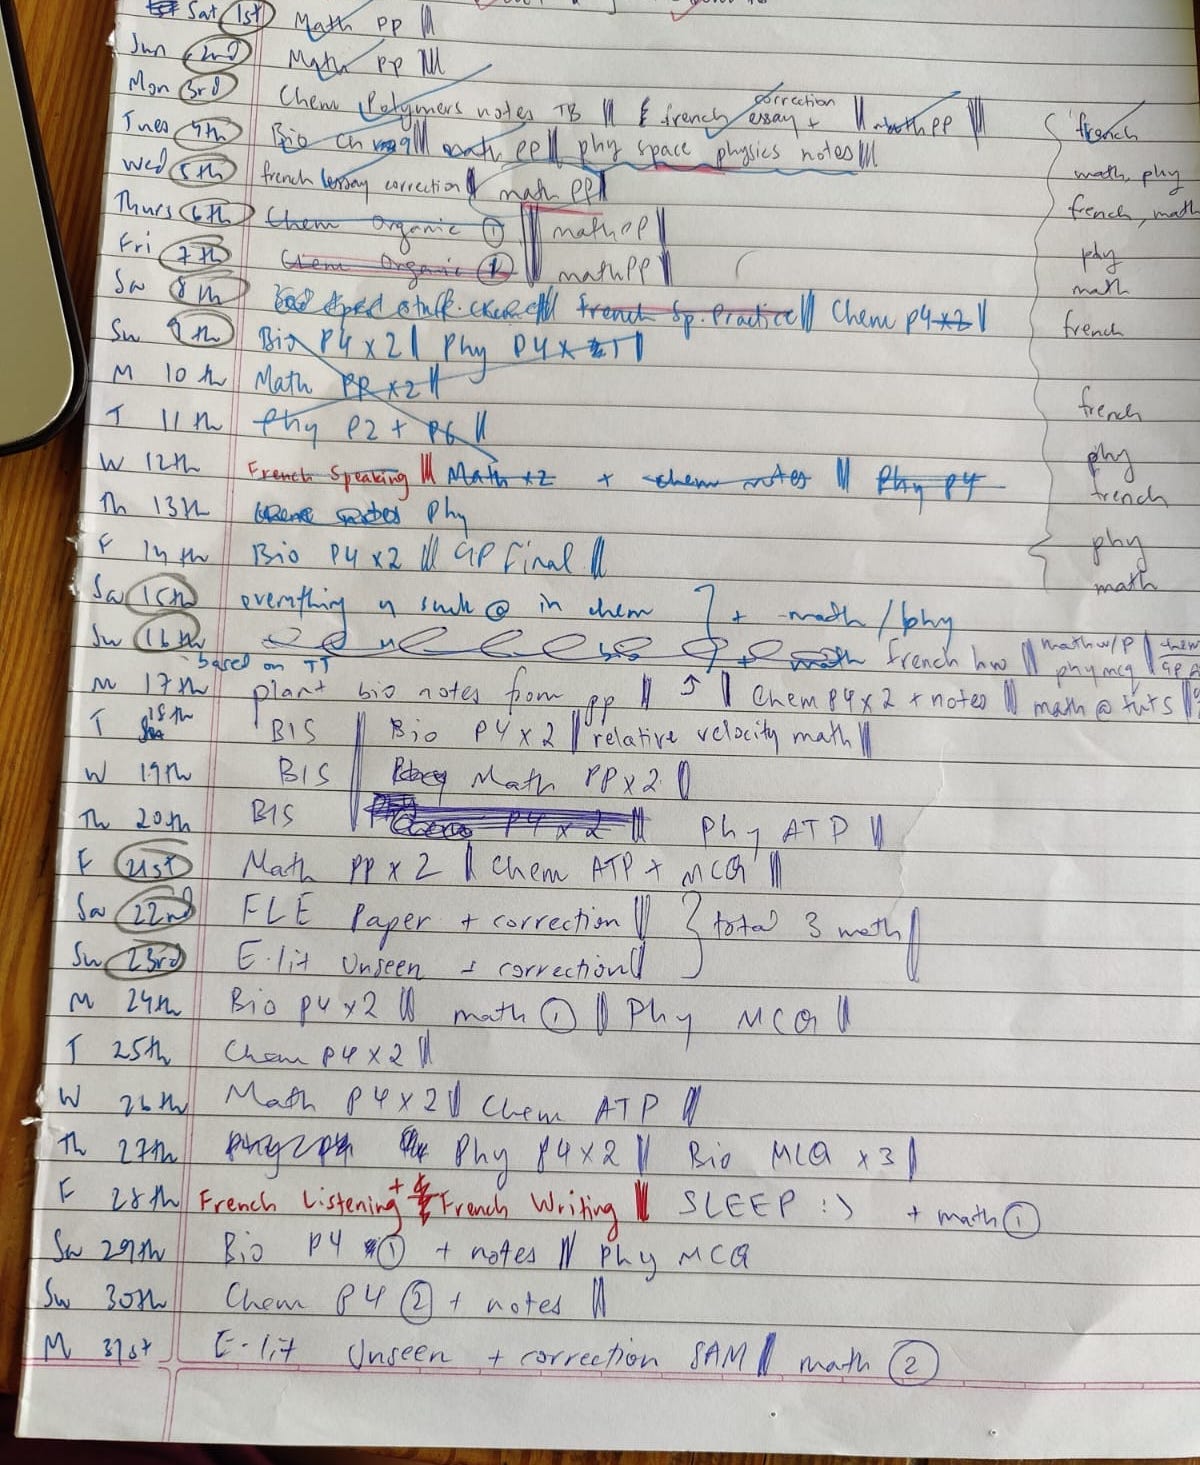 Sat 1st Math PP
Sun 2nd Math PP
Mon 3rd Chem Polymers notes TB french essay + correction math PP french
Tues 4th Bio Ch math PP phy space physics notes math, phy
Wed 5th french essay correction math PP french, math
Thurs 6th Chem Organic ① math PP phy
Fri 7th Chem Organic math PP math
Sa 8th stuff. french Sp. Practice Chem P4 x2 french
Su 9th Bio P4 x 2 Phy P4 x 1
M 10th Math PP x2 french
T 11th Phy P2 + P6 phy
W 12th French Speaking Math x2 + chem notes Phy P4 french
Th 13th notes Phy
F 14th Bio P4 x 2 GP final phy
Sa 15th everything u suck @ in chem } + math / phy math
Su 16th + math french hw math w/ P phy mcq
based on TT
M 17th plant bio notes from PP ↑ Chem P4 x 2 + notes math @ tuts
T 18th BIS Bio P4 x 2 relative velocity math
W 19th BIS Math PP x 2
Th 20th BIS P4 x 2 Phy ATP
F 21st Math PP x 2 Chem ATP + MCQ
Sa 22nd FLE Paper + correction } total 3 math
Su 23rd E-lit Unseen + correction
M 24th Bio P4 x 2 math ① Phy MCQ
T 25th Chem P4 x 2
W 26th Math P4 x 2 Chem ATP
Th 27th Phy P4 x 2 Bio MCQ x 3
F 28th French Listening + French Writing SLEEP :) + math ①
Sa 29th Bio P4 ① + notes Phy MCQ
Su 30th Chem P4 ② + notes
M 31st E-lit Unseen + correction SAM math ②